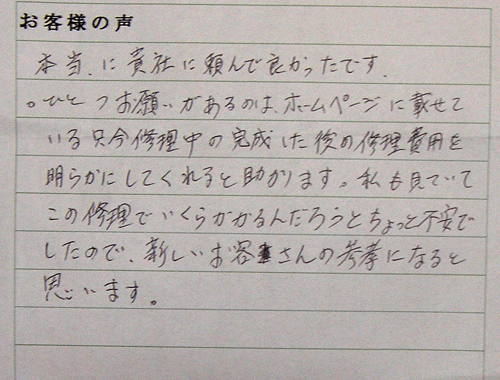 お客様の声
本当に貴社に頼んで良かったです。
。ひとつお願いがあるのは、ホームページに載せて
いる只今修理中の完成した後の修理費用を
明らかにしてくれると助かります。私も見ていて
この修理でいくらかかるんだろうとちょっと不安で
したので、新しいお客さんの参孝になると
思います。